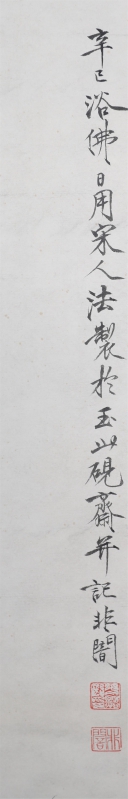 辛巳浴佛日用宋人法製於玉山硯齋并記非闇